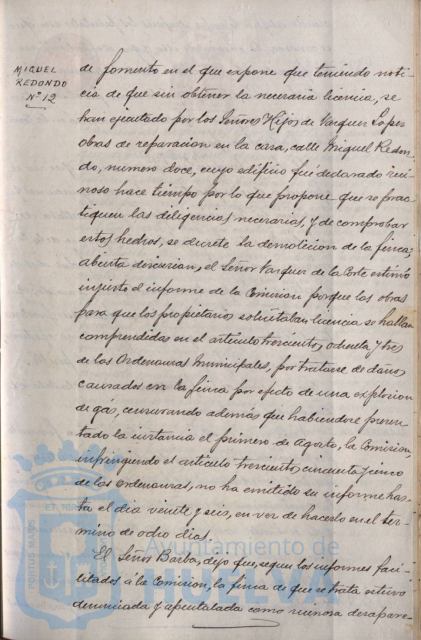 MIGUEL
REDONDO
Nº 12
de fomento en el que expone que teniendo noti-
cia de que sin obtener la necesaria licencia, se
han ejecutado por los Señores Hijos de Vazquez Lopez
obras de reparacion en la casa, calle Miguel Redon-
do, numero doce, cuyo edificio fué declarado rui-
noso hace tiempo por lo que propone que se prac-
tiquen las diligencias necesarias, y de comprobar
estos hechos, se decrete la demolicion de la finca;
abierta discusion, el Señor Vazquez de la Corte estimó
injusto el informe de la Comision porque las obras
para que los propietarios solicitaban licencia se hallan
comprendidas en el articulo trescientos ochenta y tres
de las Ordenanzas Municipales, por tratarse de daños
causados en la finca por efecto de una explosion
de gás, censurando además que habiendose presen-
tado la instancia el primero de Agosto, la Comision,
infringiendo el articulo trescientos cincuenta y cinco
de las Ordenanzas, no ha emitido su informe has-
ta el dia veinte y seis, en vez de hacerlo en el ter-
mino de ocho dias.
El Señor Barba, dijo que, segun los informes faci-
litados á la Comision, la finca de que se trata estuvo
denunciada y apuntalada como ruinosa desapare-
Ayuntamiento de
HUELVA
PORTUS MARIS